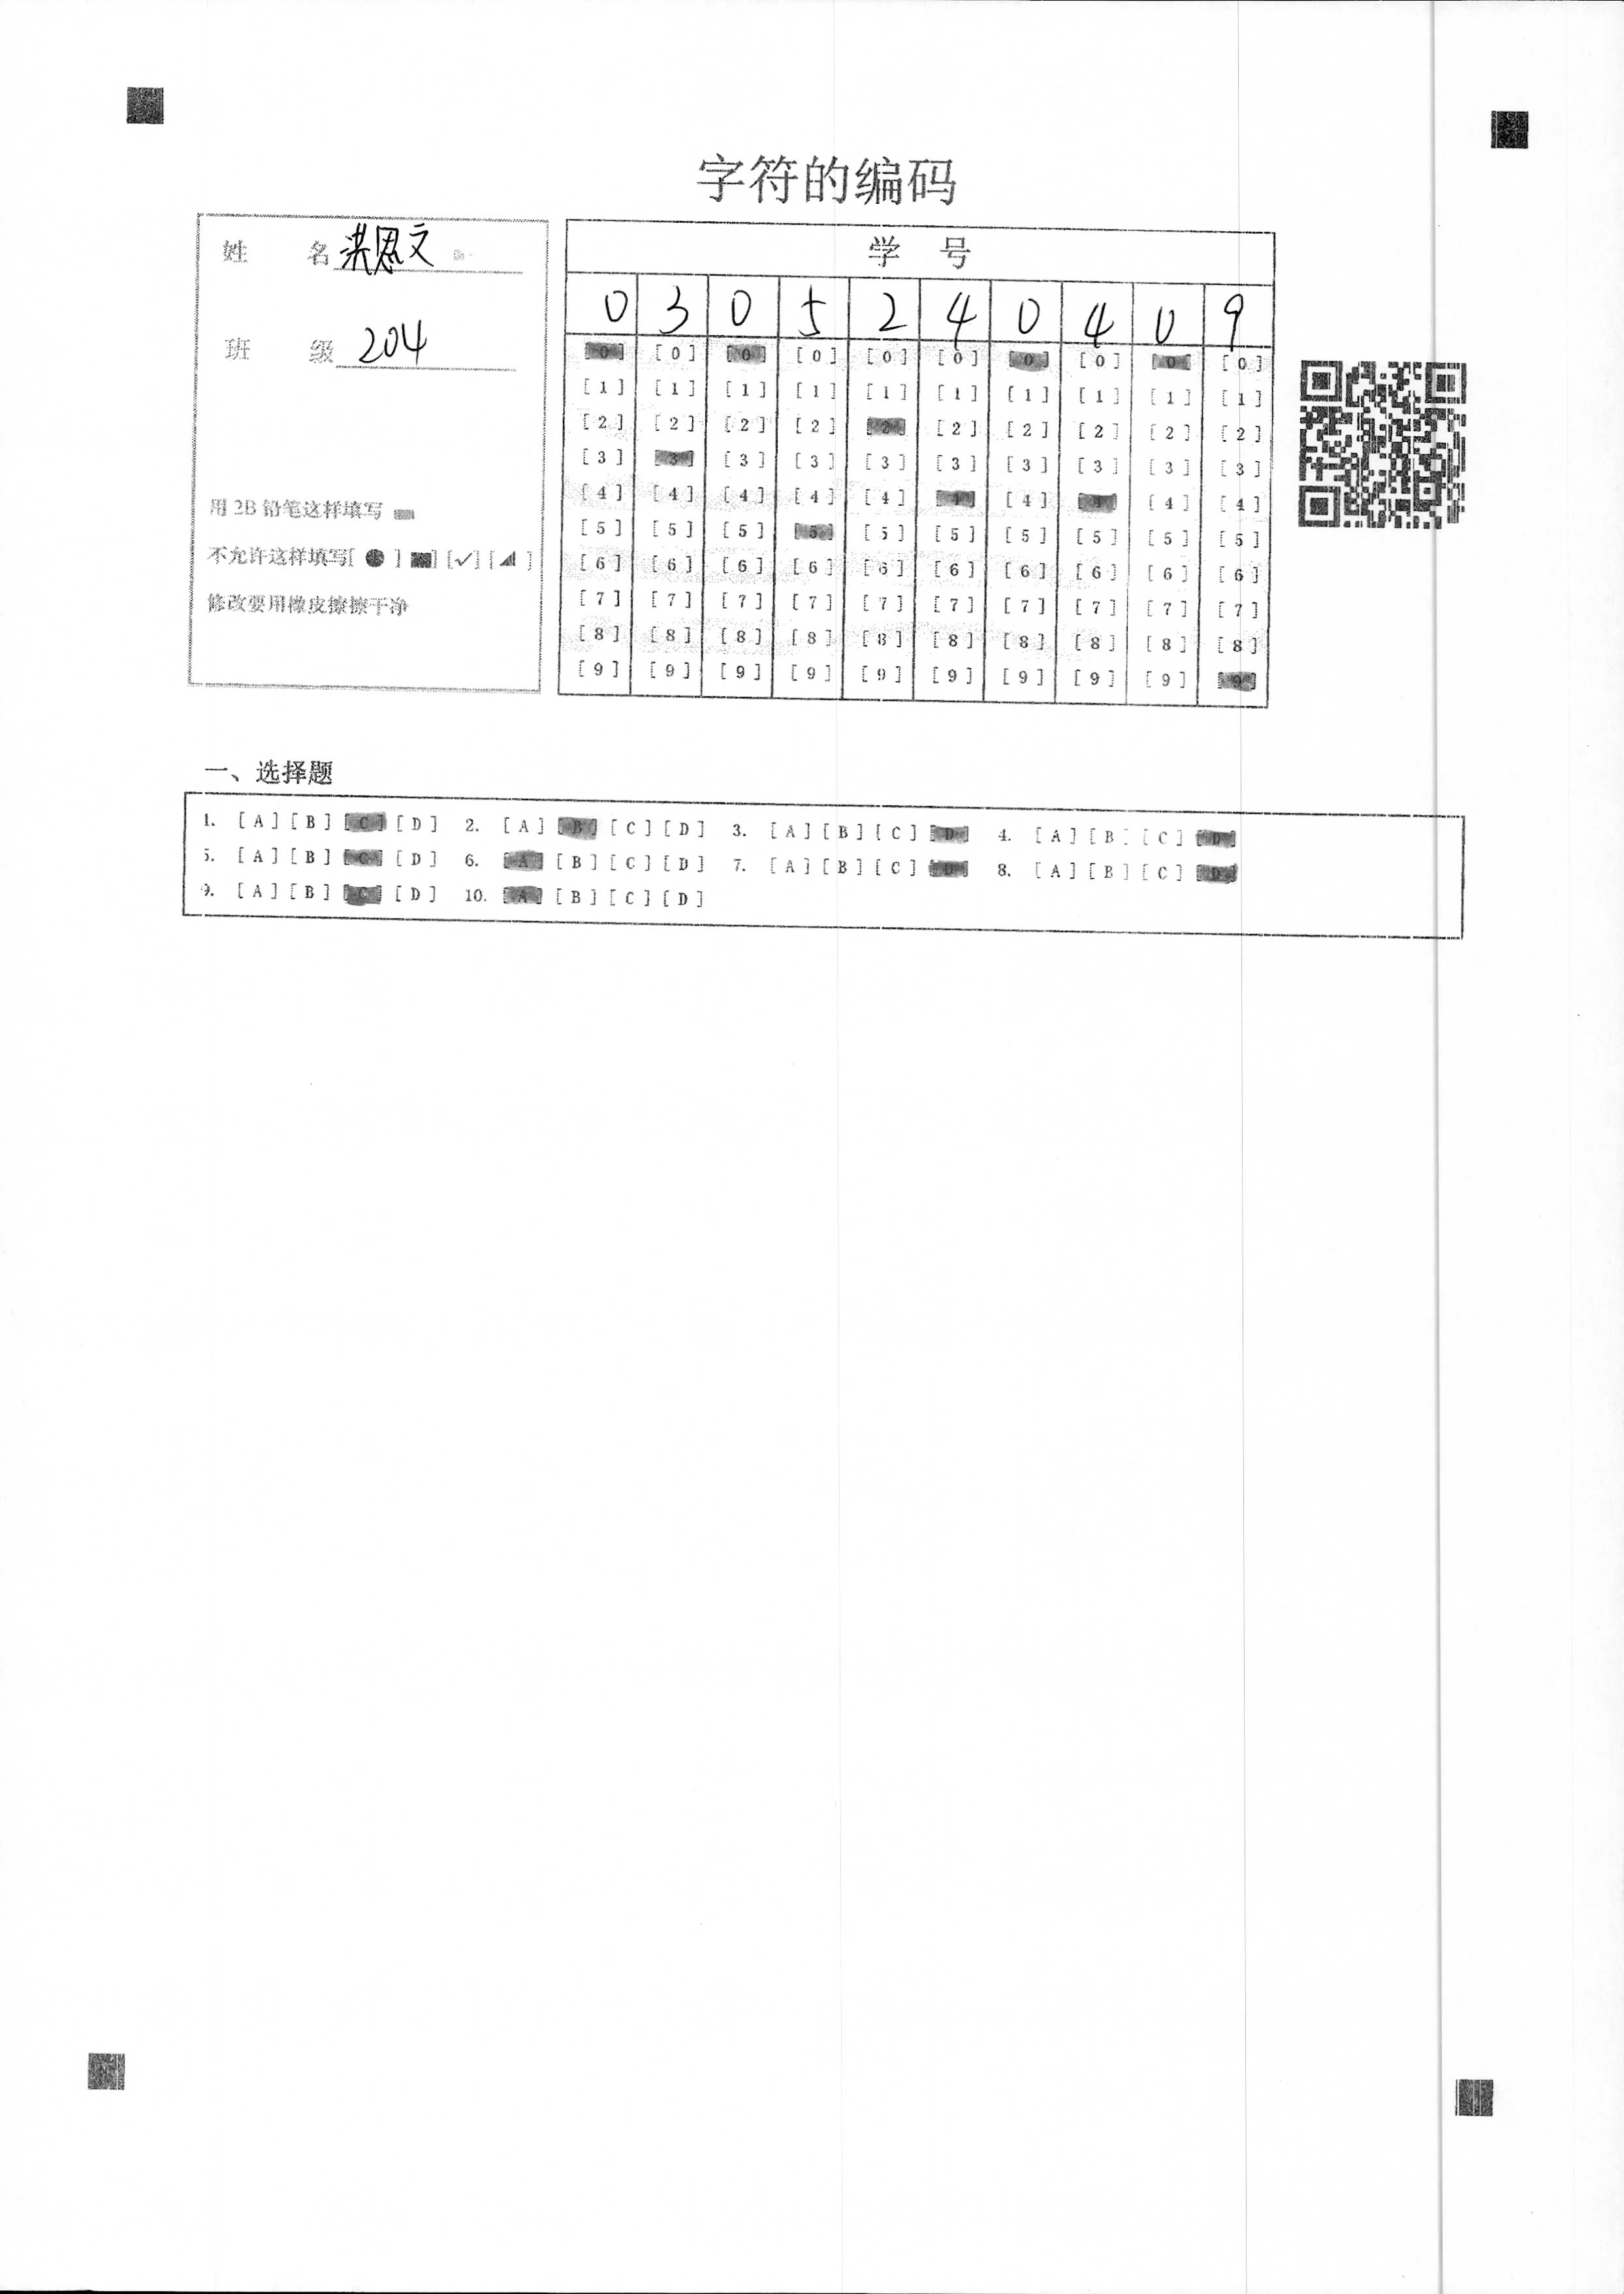 字符的编码
姓 名 洪恩文
班 级 204
用 2B 铅笔这样填写
不允许这样填写[ ● ] [■] [✓] [◢ ]
修改要用橡皮擦擦干净
学 号
0 3 0 5 2 4 0 4 0 9
[0] [0] [0] [0] [0] [0] [0] [0] [0] [0]
[1] [1] [1] [1] [1] [1] [1] [1] [1] [1]
[2] [2] [2] [2] [2] [2] [2] [2] [2] [2]
[3] [3] [3] [3] [3] [3] [3] [3] [3] [3]
[4] [4] [4] [4] [4] [4] [4] [4] [4] [4]
[5] [5] [5] [5] [5] [5] [5] [5] [5] [5]
[6] [6] [6] [6] [6] [6] [6] [6] [6] [6]
[7] [7] [7] [7] [7] [7] [7] [7] [7] [7]
[8] [8] [8] [8] [8] [8] [8] [8] [8] [8]
[9] [9] [9] [9] [9] [9] [9] [9] [9] [9]
一、选择题
1. [A] [B] [C] [D] 2. [A] [B] [C] [D] 3. [A] [B] [C] [D] 4. [A] [B] [C] [D]
5. [A] [B] [C] [D] 6. [A] [B] [C] [D] 7. [A] [B] [C] [D] 8. [A] [B] [C] [D]
9. [A] [B] [C] [D] 10. [A] [B] [C] [D]